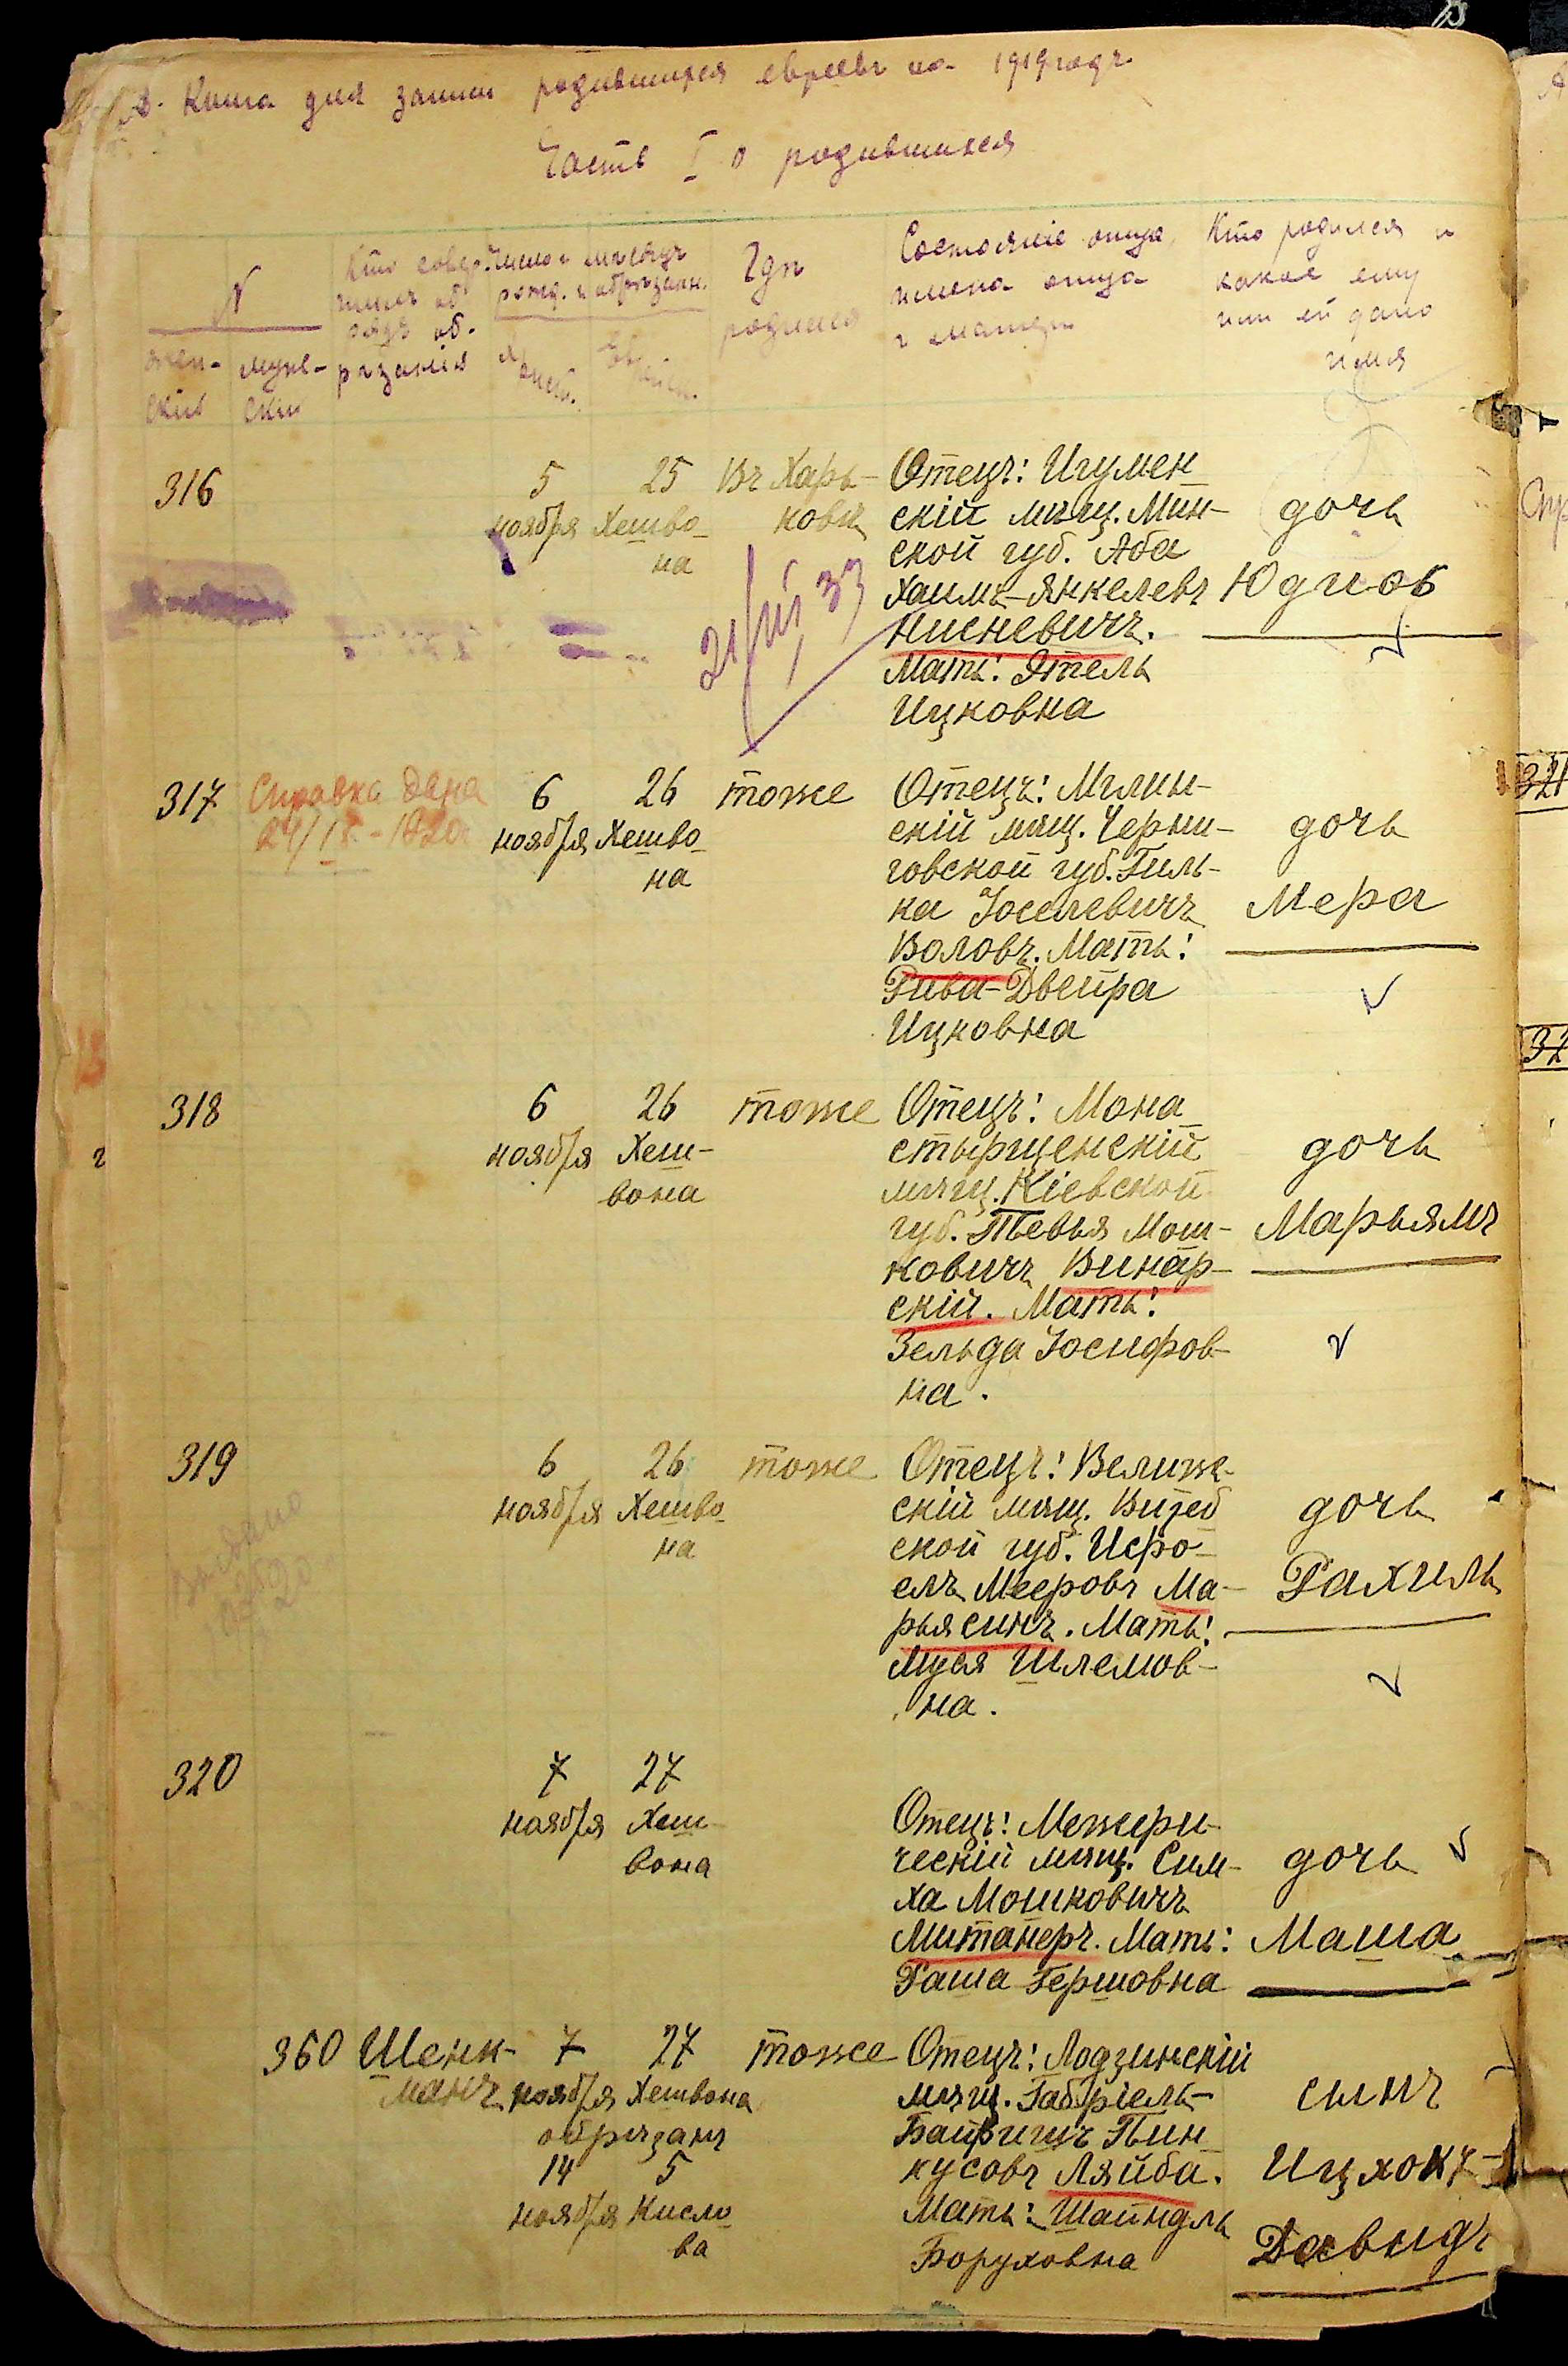 Книга для записи родившихся евреевъ на 1919 годъ
Часть I о родившихся
N
жен-
скій
муж-
скій
Кто совер-
шилъ об-
рядъ об-
рѣзанія
Число и мѣсяцъ
рожд. и обрѣзанія.
Гдѣ
родился
Состояніе отца,
имена отца
и матери
Кто родился и
какое ему
или ей дано
имя
316
5
ноября
25
Хешво-
на
Въ Харь-
ковѣ
Отецъ: Игумен-
скій мѣщ. Мин-
ской губ. Аба
Хаимъ-Янкелевъ
Нисневичъ.
Мать: Этель
Ицковна
дочь
Юдиѳь
21/III 33
317
Справка дана
6
ноября
26
Хешво-
на
тоже
Отецъ: Мглин-
скій мѣщ. Черни-
говской губ. Гиль-
ка Іоселевичъ
Воловъ. Мать:
Рива-Двейра
Ицковна
дочь
Мера
318
6
ноября
26
Хеш-
вона
тоже
Отецъ: Мона-
стырщенскій
мѣщ. Кіевской
губ. Тевья Мош-
ковичъ Винар-
скій. Мать:
Зельда Іосифов-
на.
дочь
Марьямъ
319
6
ноября
26
Хешво-
на
тоже
Отецъ: Велиж-
скій мѣщ. Витеб-
ской губ. Исро-
елъ Мееровъ Ма-
рьясинъ. Мать:
Муся Шлемов-
на.
дочь
Рахиль
320
7
ноября
27
Хеш-
вона
Отецъ: Межери-
ческій мѣщ. Сим-
ха Мошковичъ
Митанеръ. Мать:
Раша Гершовна
дочь
Маша
360
Шенк-
манъ
7
ноября
27
Хешвона
обрѣзанъ
14
ноября
5
Кисло-
ва
тоже
Отецъ: Лодзинскій
мѣщ. Габріель-
Байришъ Пин-
кусовъ Ляйба.
Мать: Шайндль
Боруховна
сынъ
Ицхокъ-
Давидъ